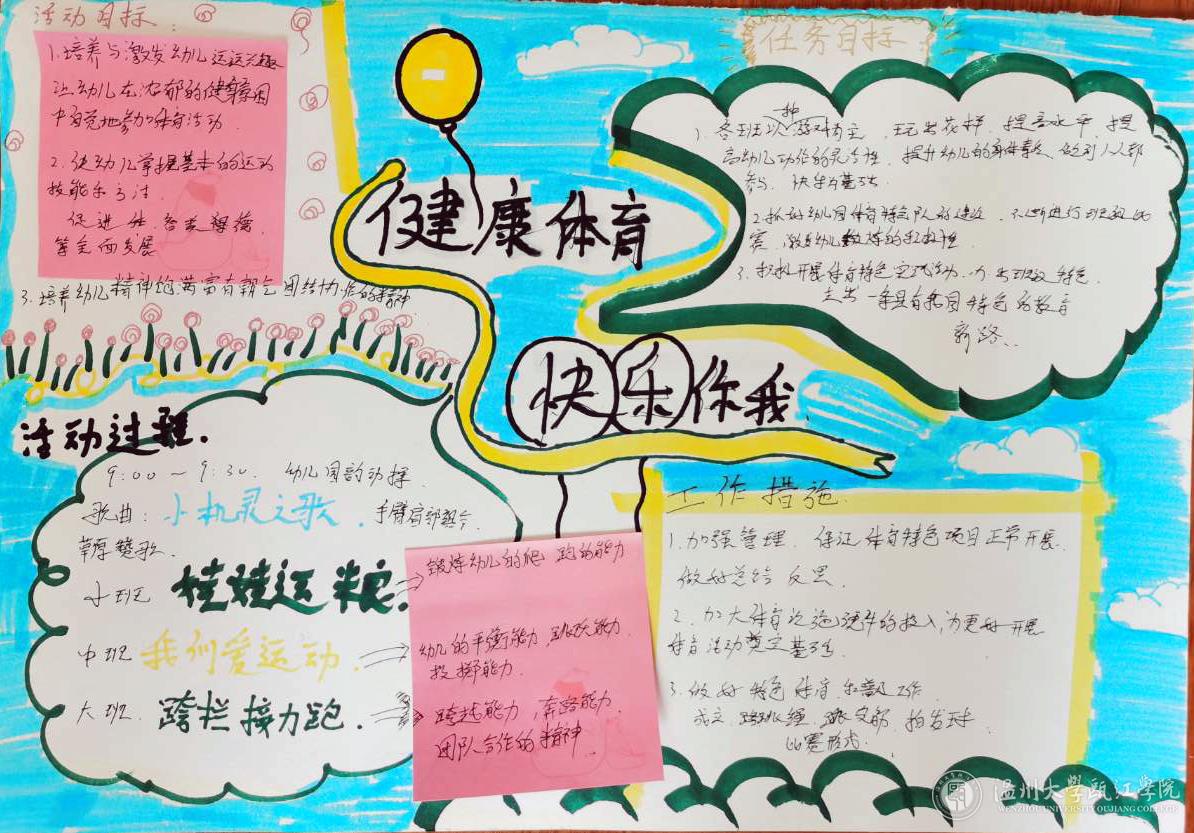 活动目标
1.培养与激发幼儿运动兴趣
让幼儿在浓郁的健身氛围
中自觉地参加体育活动.
2.使幼儿掌握基本的运动
技能与方法.
促进体、智、美、德
等全面发展
3.培养幼儿精神饱满富有朝气团结协作的精神
健康体育
快乐你我
任务目标
种
1.各班以游戏为主,玩出花样,提高水平,提
高幼儿动作的灵活性,提升幼儿的身体素质,做到人人都
参与,快乐为基础.
2.抓好幼儿园体育特色队的建设,不断进行班级比
赛,激发幼儿锻炼的积极性.
3.积极开展体育特色实践活动,办出班级特色
走出一条具有我园特色的教育
新路..
活动过程.
9:00~9:30. 幼儿园韵动操
歌曲:小机灵之歌 手臂肩部组合.
草原赞歌.
小班 娃娃运粮.
锻炼幼儿的爬、跑的能力
中班 我们爱运动.
幼儿的平衡能力,跳跃能力.
投掷能力.
大班. 跨栏接力跑.
跨越能力,奔跑能力.
团队合作的精神.
工作措施.
1.加强管理、保证体育特色项目正常开展.
做好总结反思.
2.加大体育设施硬件的投入,为更好开展
体育活动奠定基础.
3.做好特色体育 工作
成立 跳绳、 拍皮球
比赛形式.
温州大学瓯江学院
WENZHOU UNIVERSITY OUJIANG COLLEGE